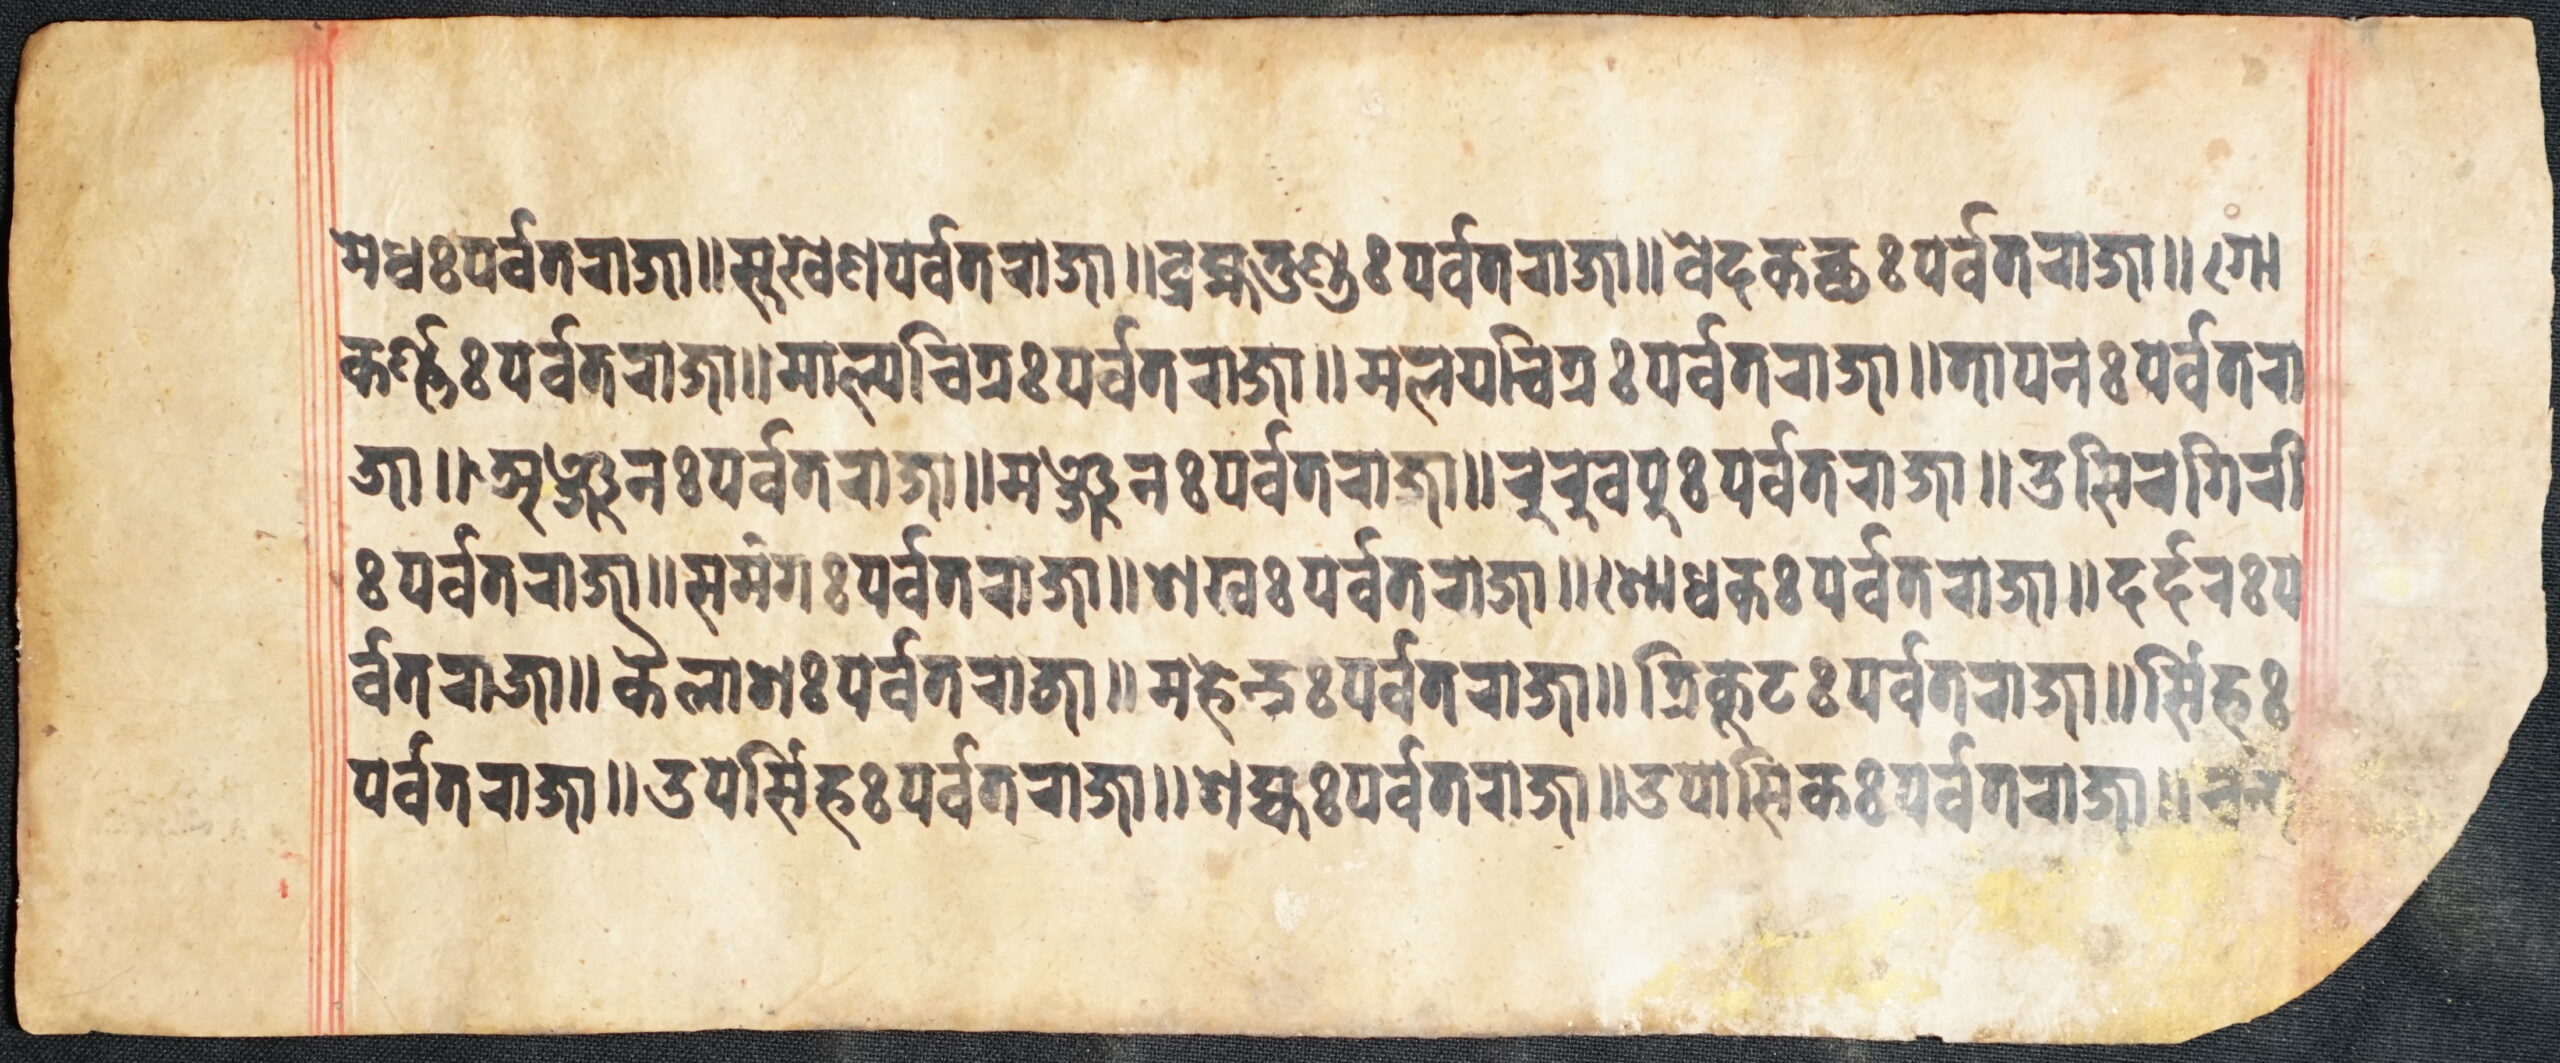 मेधः पर्वतराजा॥ सुखेण पर्वतराजा॥ ब्रह्मतुण्डः पर्वतराजा॥ वेदकच्छः पर्वतराजा॥ गो
कर्ण्णः पर्वतराजा॥ माल्यचित्रः पर्वतराजा॥ मलयचित्रः पर्वतराजा॥ तापनः पर्वतरा
जा॥ अञ्जनः पर्वतराजा॥ मञ्जनः पर्वतराजा॥ रुरुवपुः पर्वतराजा॥ उसिरगिरी
ः पर्वतराजा॥ समंगः पर्वतराजा॥ शखः पर्वतराजा॥ शोधकः पर्वतराजा॥ दर्दरः प
र्वतराजा॥ कैलाशः पर्वतराजा॥ महेन्द्रः पर्वतराजा॥ त्रिकूटः पर्वतराजा॥ सिंहः
पर्वतराजा॥ उपसिंहः पर्वतराजा॥ शङ्खः पर्वतराजा॥ उपासिकः पर्वतराजा॥